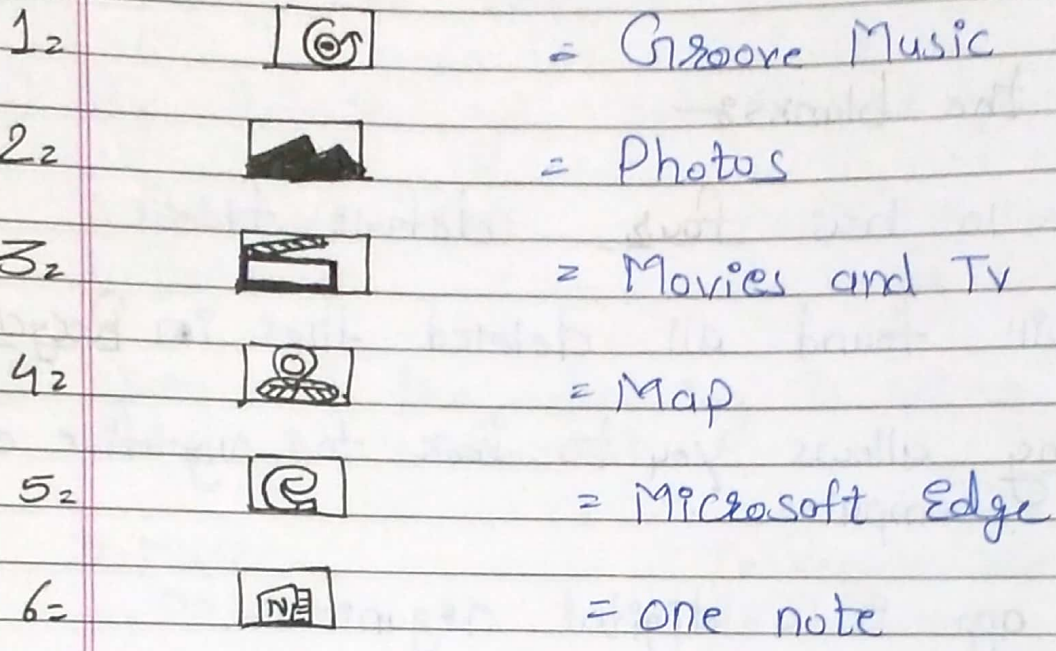 1= = Groove Music
2= = Photos
3= = Movies and Tv
4= = Map
5= e = Microsoft Edge
6= N = one note